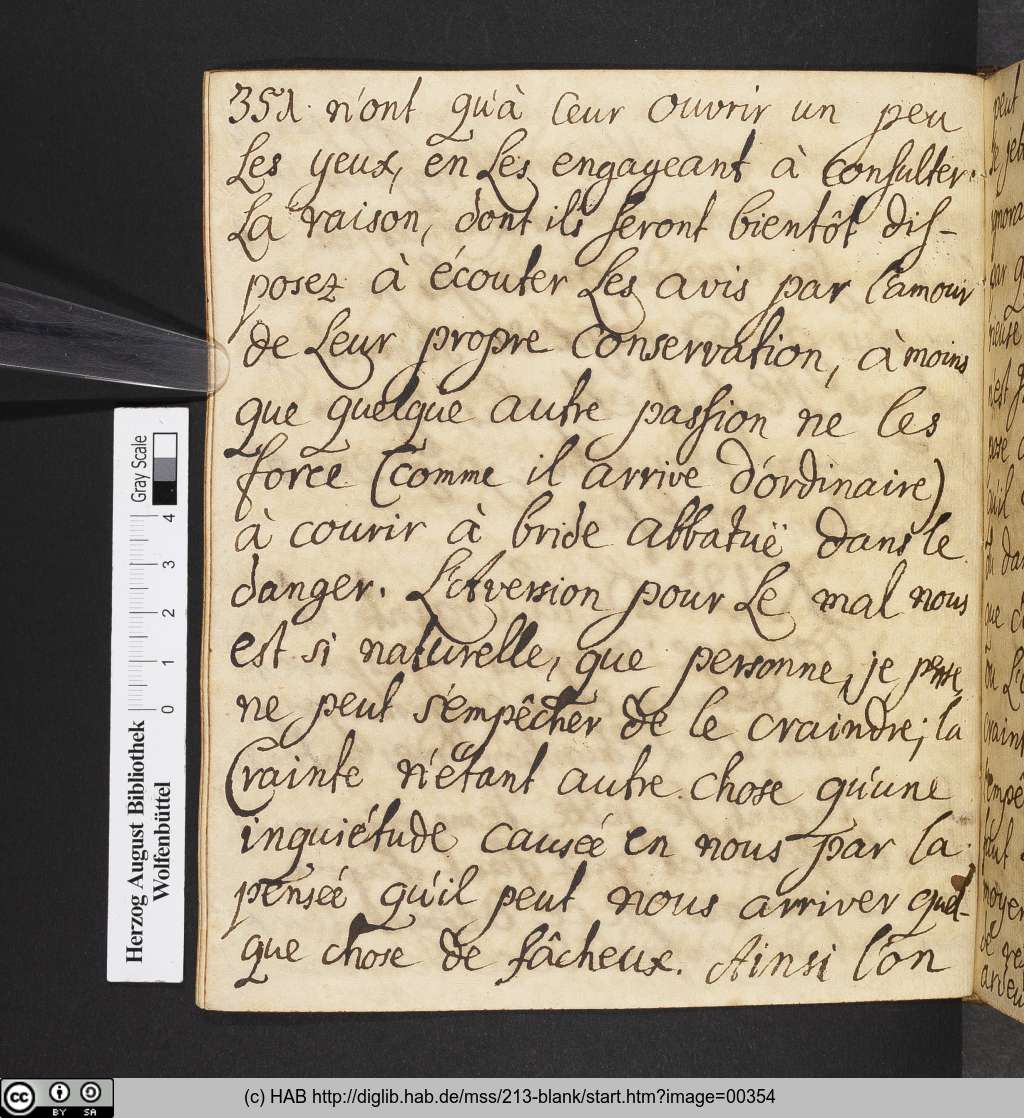 351. n'ont qu'à leur ouvrir un peu
Les yeux, en Les engageant à consulter
La raison, dont ils seront bientôt dis-
posez à écouter Les avis par l'amour
de Leur propre conservation, à moins
que quelque autre passion ne les
force (comme il arrive d'ordinaire)
à courir à bride abbatuë dans le
danger. L'Aversion pour Le mal nous
est si naturelle, que personne, je pense,
ne peut s'empêcher de le craindre; la
Crainte n'étant autre chose qu'une
inquiétude causée en nous par la
pensée qu'il peut nous arriver quel-
que chose de fâcheux. Ainsi l'on
Gray Scale
0 1 2 3 4
Herzog August Bibliothek
Wolfenbüttel
cc BY SA
(c) HAB http://diglib.hab.de/mss/213-blank/start.htm?image=00354